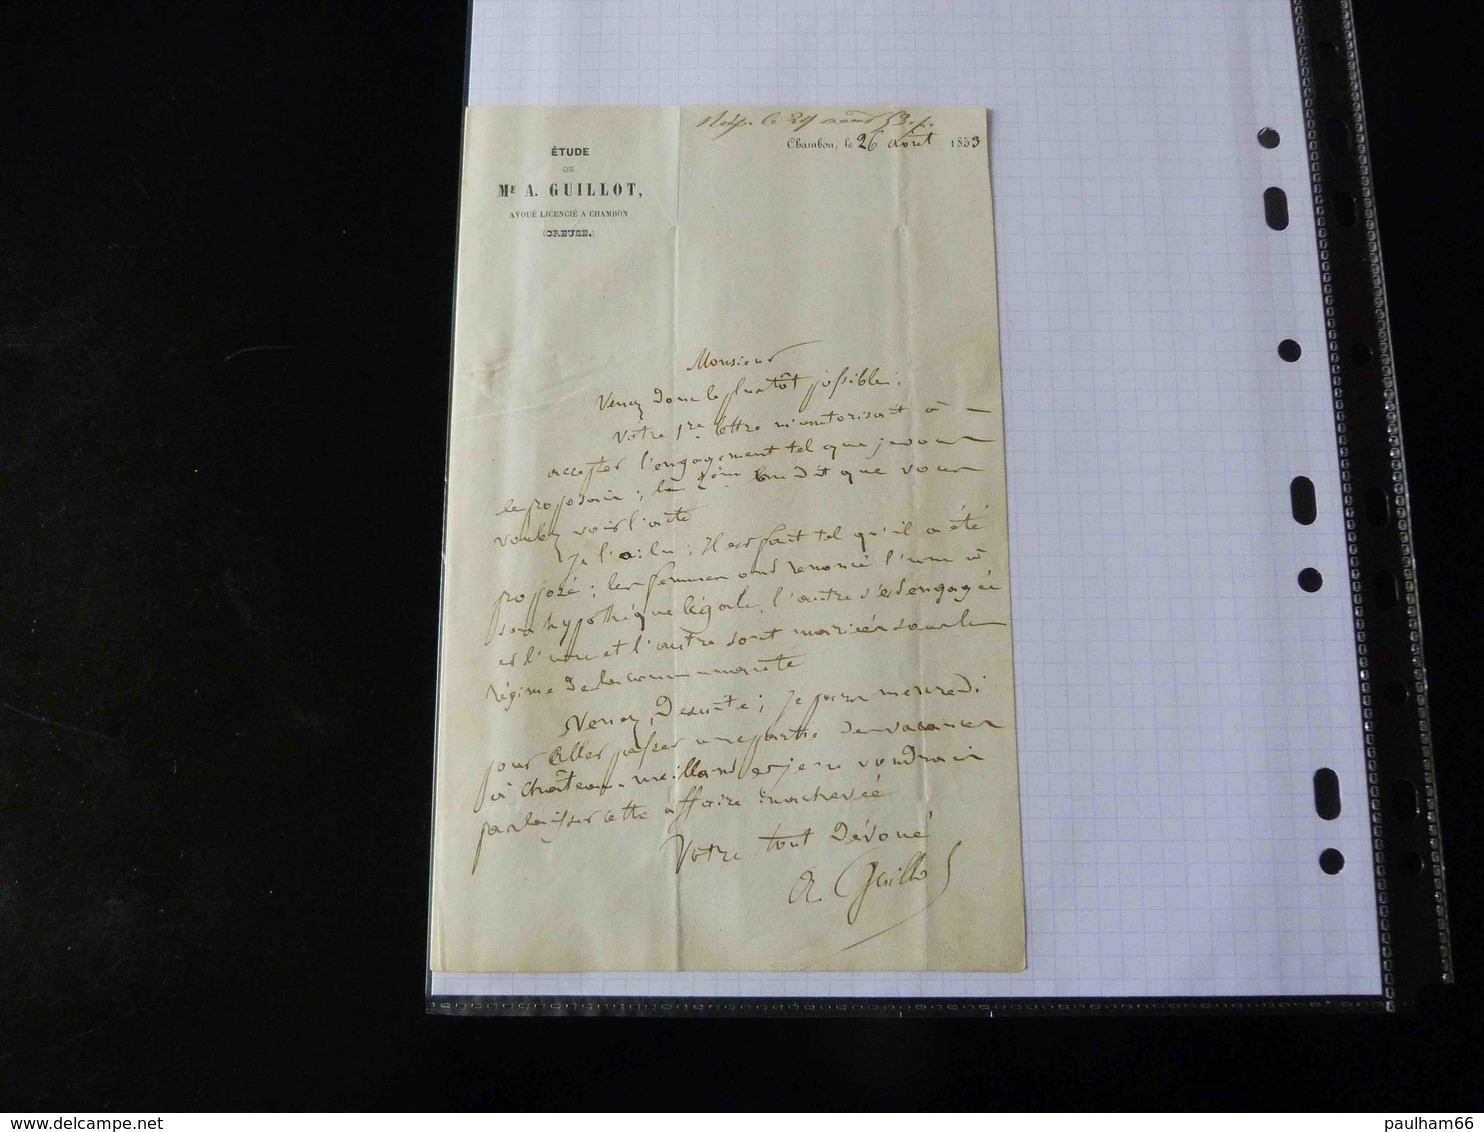 Rép. le 29 août 53.
Chambon, le 26 août 1853
ÉTUDE
DE
ME A. GUILLOT,
AVOUÉ LICENCIÉ A CHAMBON
(CREUSE.)
Monsieur
Venez donc le plustôt possible;
Votre 1re lettre m'autorisait à
accepter l'engagement tel que je vous
le proposais; la 2eme me dit que vous
voulez voir l'acte
Je l'ai lu; Il est fait tel qu'il a été
proposé; les femmes ont renoncé l'une à
son hypothèque légale, l'autre s'est engagée
et l'une et l'autre sont mariées sous le
régime de la communauté
Venez, De suite; Je pars mercredi
pour Aller passer une partie des vacances
à Château-meillant et je ne voudrais
pas laisser cette affaire inachevée
Votre tout Dévoué
A. Guillot
delcampe.net
paulham66